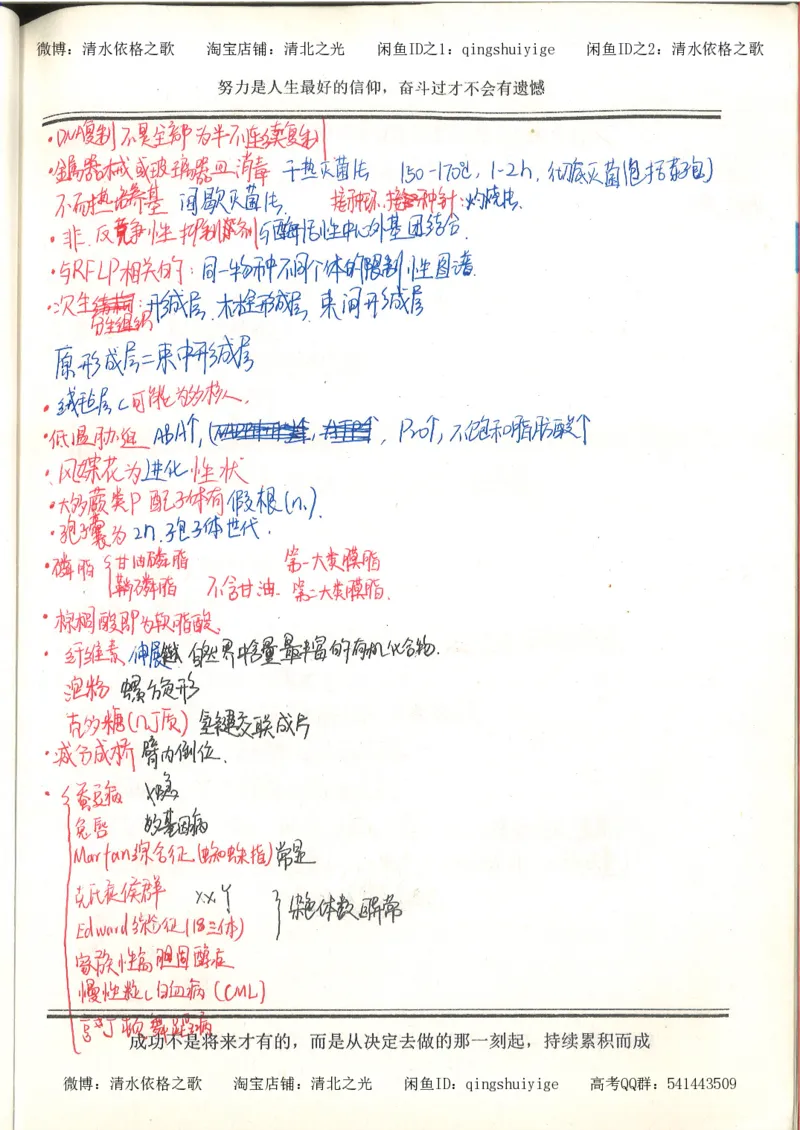 微博：清水依格之歌 淘宝店铺：清北之光 闲鱼ID之1：qingshuiyige 闲鱼ID之2：清水依格之歌
努力是人生最好的信仰，奋斗过才不会有遗憾
·DNA复制不是全部为半不连续复制
·金属器械或玻璃器皿消毒 干热灭菌法 150-170℃，1-2h，彻底灭菌(包括芽孢)
不耐热培养基 间歇灭菌法 接种环、接种针：灼烧法.
·非.反竞争性抑制剂与酶活性中心外基团结合.
·与RFLP相关的：同一物种不同个体的限制性图谱.
·次生分生组织：形成层、木栓形成层、束间形成层
原形成层=束中形成层
·绒毡层c可能为多核人.
·低温胁迫 ABA↑, Pro↑, 不饱和脂肪酸↑
·风媒花为进化性状
·大多蕨类P 配子体有假根(n).
·孢子囊为2n.孢子体世代.
·磷脂 甘油磷脂 第一大类膜脂
鞘磷脂 不含甘油. 第二大类膜脂.
·棕榈酸即为软脂酸.
·纤维素 伸展 自然界中含量最丰富的有机化合物.
淀粉 螺旋形
壳多糖(几丁质) 氢键交联成片
·减分成桥 臂内倒位.
·蚕豆病 X隐
兔唇 多基因病
Marfan综合征(蜘蛛指)常显
克氏症侯群 XXY
Edward综合征(18三体) 染色体数目异常
家族性高胆固醇症
慢性粒c白血病(CML)
亨丁顿舞蹈病
成功不是将来才有的，而是从决定去做的那一刻起，持续累积而成
微博：清水依格之歌 淘宝店铺：清北之光 闲鱼ID：qingshuiyige 高考QQ群：541443509